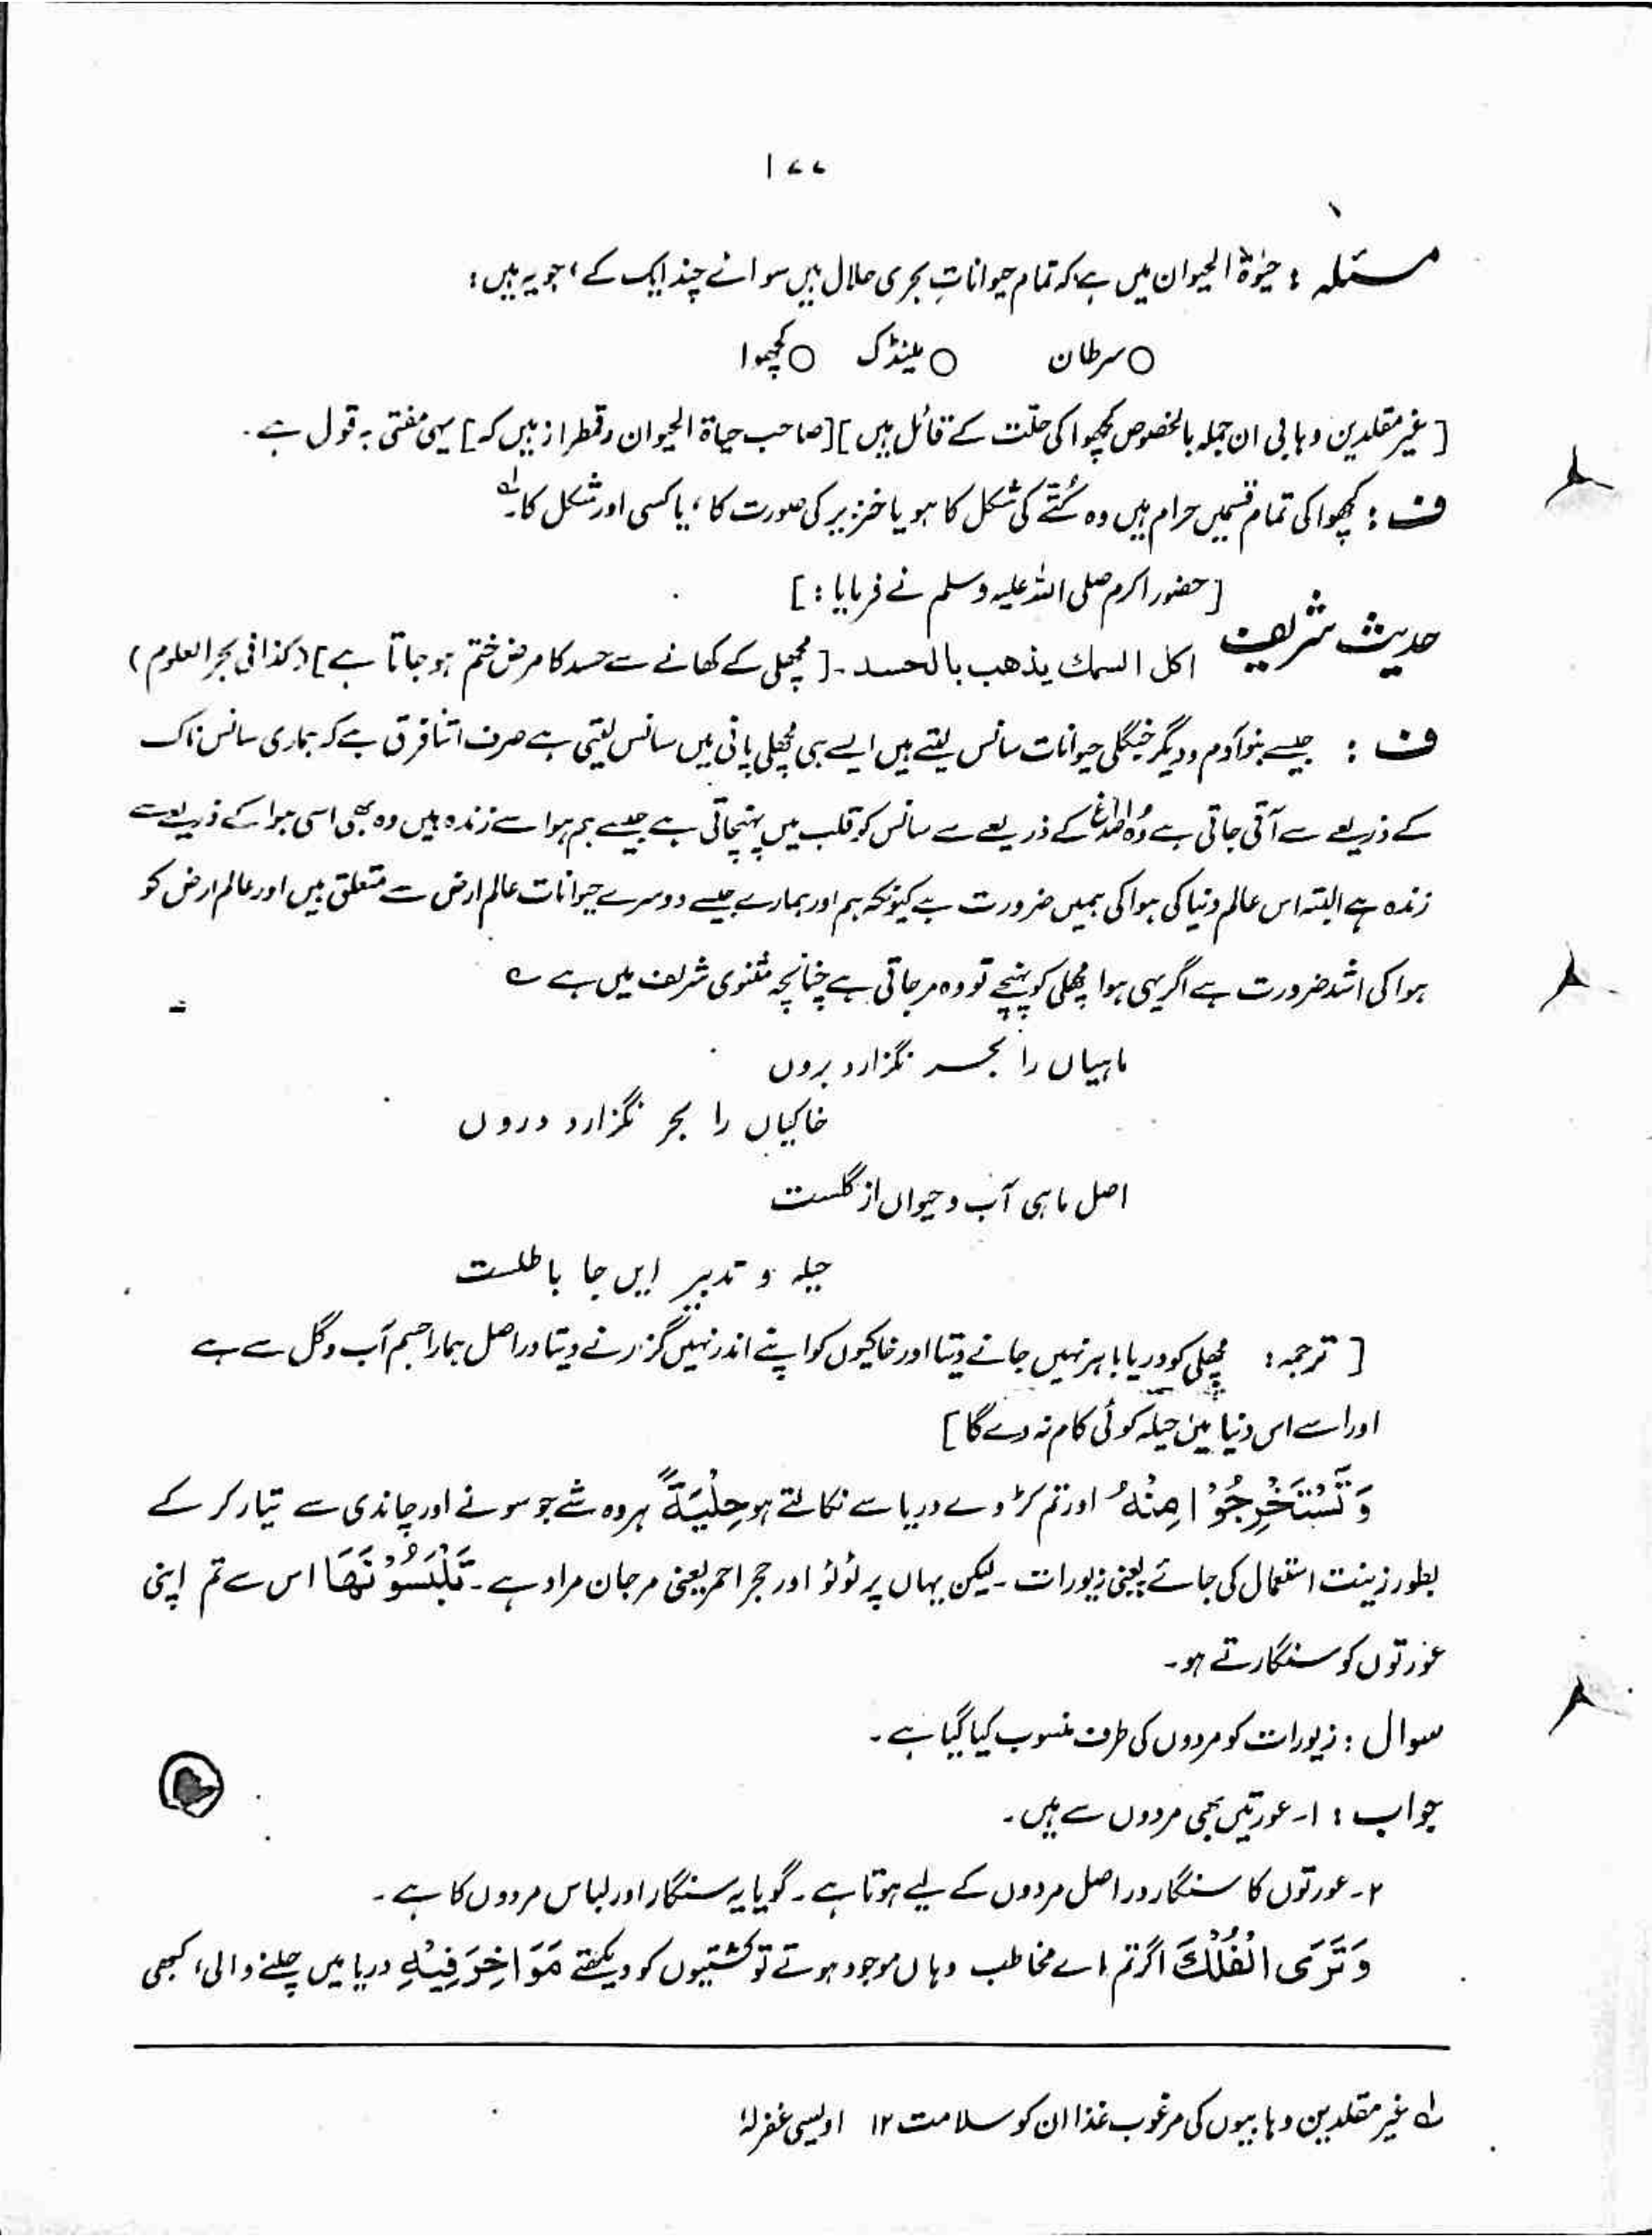 ۱۷۷
مسئلہ : حیٰوۃ الحیوان میں ہے کہ تمام حیواناتِ بحری حلال ہیں سوائے چند ایک کے، جو یہ ہیں :
○ سرطان ○ مینڈک ○ کچھوا
[غیر مقلدین وہابی ان جملہ بالخصوص کچھوا کی حلّت کے قائل ہیں] [صاحب حیاۃ الحیوان رقمطراز ہیں کہ] یہی مفتیٰ بہ قول ہے۔
ف : کچھوا کی تمام قسمیں حرام ہیں وہ کُتّے کی شکل کا ہو یا خنزیر کی صورت کا، یا کسی اور شکل کا۔ؔ۱
[حضور اکرم صلی اللہ علیہ وسلم نے فرمایا :]
حدیث شریف اکل السمك یذھب بالحسد۔ [مچھلی کے کھانے سے حسد کا مرض ختم ہو جاتا ہے] (کذا فی بحر العلوم)
ف : جیسے بنو آدم و دیگر جنگلی حیوانات سانس لیتے ہیں ایسے ہی مچھلی پانی میں سانس لیتی ہے صرف اتنا فرق ہے کہ ہماری سانس ناک
کے ذریعے سے آتی جاتی ہے وُہ کے ذریعے سے سانس کو قلب میں پہنچاتی ہے جیسے ہم ہوا سے زندہ ہیں وہ بھی اسی ہوا کے ذریعے سے
زندہ ہے البتہ اس عالم دنیا کی ہوا کی ہمیں ضرورت ہے کیونکہ ہم اور ہمارے جیسے دوسرے حیوانات عالم ارض سے متعلق ہیں اور عالم ارض کو
ہوا کی اشد ضرورت ہے اگر یہی ہوا مچھلی کو پہنچے تو وہ مر جاتی ہے چنانچہ مثنوی شریف میں ہے ؎
ماہیاں را بحر نگزارد بروں
خاکیاں را بحر نگزارد دروں
اصل ماہی آب و حیواں از گلست
حیلہ و تدبیر ایں جا باطلست
[ ترجمہ : مچھلی کو دریا باہر نہیں جانے دیتا اور خاکیوں کو اپنے اندر نہیں گزرنے دیتا دراصل ہمارا جسم آب و گل سے ہے
اور اسے اس دنیا میں حیلہ کوئی کام نہ دے گا ]
وَتَسْتَخْرِجُوْا مِنْهُ اور تم کڑوے دریا سے نکالتے ہو حِلْيَةً ہر وہ شے جو سونے اور چاندی سے تیار کر کے
بطور زینت استعمال کی جائے یعنی زیورات۔ لیکن یہاں پر لُؤلُؤ اور حجر احمر یعنی مرجان مراد ہے۔ تَلْبَسُوْنَهَا اس سے تم اپنی
عورتوں کو سنگارتے ہو۔
سوال : زیورات کو مردوں کی طرف منسوب کیا گیا ہے۔
جواب : ۱۔ عورتیں بھی مردوں سے ہیں۔
۲۔ عورتوں کا سنگار دراصل مردوں کے لیے ہوتا ہے۔ گویا یہ سنگار اور لباس مردوں کا ہے۔
وَتَرَى الْفُلْكَ اگر تم اے مخاطب وہاں موجود ہوتے تو کشتیوں کو دیکھتے مَوَاخِرَ فِيْهِ دریا میں چلنے والی، کبھی
ؔ۱ غیر مقلدین وہابیوں کی مرغوب غذا ان کو سلامت ۱۲ اویسی غفرلہٗ